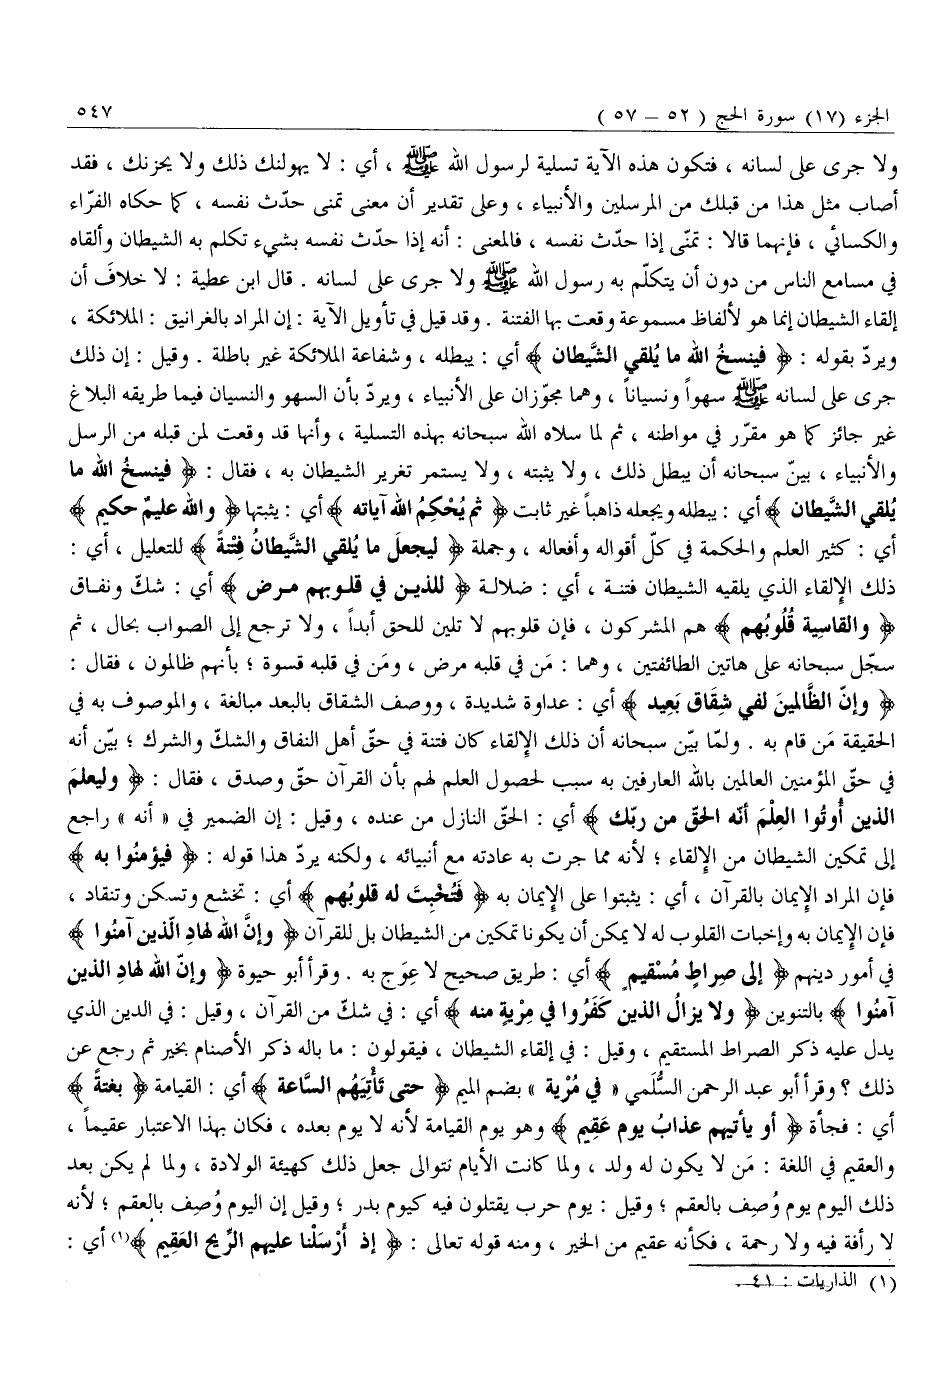 الجزء (١٧) سورة الحج ( ٥٢ – ٥٧ ) ٥٤٧
ولا جرى على لسانه ، فتكون هذه الآية تسلية لرسول الله ﷺ ، أي : لا يهولنك ذلك ولا يحزنك ، فقد
أصاب مثل هذا من قبلك من المرسلين والأنبياء ، وعلى تقدير أن معنى تمنى حدّث نفسه ، كما حكاه الفرّاء
والكسائي ، فإنهما قالا : تمنّى إذا حدّث نفسه ، فالمعنى : أنه إذا حدّث نفسه بشيء تكلم به الشيطان وألقاه
في مسامع الناس من دون أن يتكلّم به رسول الله ﷺ ولا جرى على لسانه . قال ابن عطية : لا خلافَ أن
إلقاء الشيطان إنما هو لألفاظ مسموعة وقعت بها الفتنة . وقد قيل في تأويل الآية : إن المراد بالغرانيق : الملائكة ،
ويردّ بقوله : ﴿ فينسخُ الله ما يُلقي الشَّيطان ﴾ أي : يبطله ، وشفاعة الملائكة غير باطلة . وقيل : إن ذلك
جرى على لسانه ﷺ سهواً ونسياناً ، وهما مجوّزان على الأنبياء ، ويردّ بأن السهو والنسيان فيما طريقه البلاغ
غير جائز كما هو مقرّر في مواطنه ، ثم لما سلاه الله سبحانه بهذه التسلية ، وأنها قد وقعت لمن قبله من الرسل
والأنبياء ، بينّ سبحانه أن يبطل ذلك ، ولا يثبته ، ولا يستمر تغرير الشيطان به ، فقال : ﴿ فينسخُ الله ما
يُلقي الشَّيطان ﴾ أي : يبطله ويجعله ذاهباً غير ثابت ﴿ ثم يُحْكِمُ الله آياته ﴾ أي : يثبتها ﴿ والله عليمٌ حكيم ﴾
أي : كثير العلم والحكمة في كلّ أقواله وأفعاله ، وجملة ﴿ ليجعلَ ما يُلقي الشَّيطانُ فِتْنةً ﴾ للتعليل ، أي :
ذلك الإلقاء الذي يلقيه الشيطان فتنة ، أي : ضلالة ﴿ للذين في قلوبهم مرض ﴾ أي : شكّ ونفاق
﴿ والقاسية قُلُوبُهم ﴾ هم المشركون ، فإن قلوبهم لا تلين للحق أبداً ، ولا ترجع إلى الصواب بحال ، ثم
سجّل سبحانه على هاتين الطائفتين ، وهما : مَن في قلبه مرض ، ومَن في قلبه قسوة ؛ بأنهم ظالمون ، فقال :
﴿ وإنّ الظَّالمينَ لفي شِقَاق بَعِيد ﴾ أي : عداوة شديدة ، ووصف الشقاق بالبعد مبالغة ، والموصوف به في
الحقيقة مَن قام به . ولمّا بيّن سبحانه أن ذلك الإلقاء كان فتنة في حقّ أهل النفاق والشكّ والشرك ؛ بيّن أنه
في حقّ المؤمنين العالمين بالله العارفين به سبب لحصول العلم لهم بأن القرآن حقّ وصدق ، فقال : ﴿ وليعلمَ
الذين أُوتُوا العِلْمَ أنّه الحقّ من ربّك ﴾ أي : الحقّ النازل من عنده ، وقيل : إن الضمير في « أنه » راجع
إلى تمكين الشيطان من الإلقاء ؛ لأنه مما جرت به عادته مع أنبيائه ، ولكنه يردّ هذا قوله : ﴿ فيؤمنُوا به ﴾
فإن المراد الإيمان بالقرآن ، أي : يثبتوا على الإيمان به ﴿ فَتُخْبِتَ له قلوبُهم ﴾ أي : تخشع وتسكن وتنقاد ،
فإن الإيمان به وإخبات القلوب له لا يمكن أن يكونا تمكين من الشيطان بل للقرآن ﴿ وإنَّ الله لهادِ الّذين آمنُوا ﴾
في أمور دينهم ﴿ إلى صِراطٍ مُسْتقيم ﴾ أي : طريق صحيح لا عِوَج به . وقرأ أبو حيوة ﴿ وإنّ الله لهادٍ الذين
آمنُوا ﴾ بالتنوين ﴿ ولا يزالُ الذين كفَرُوا في مِرْيةٍ منه ﴾ أي : في شكّ من القرآن ، وقيل : في الدين الذي
يدل عليه ذكر الصراط المستقيم ، وقيل : في إلقاء الشيطان ، فيقولون : ما باله ذكر الأصنام بخير ثم رجع عن
ذلك ؟ وقرأ أبو عبد الرحمن السُّلَمي « في مُرْية » بضم الميم ﴿ حتى تأتِيَهُم السَّاعة ﴾ أي : القيامة ﴿ بغتةً ﴾
أي : فجأة ﴿ أو يأتيهم عذابُ يوم عَقِيم ﴾ وهو يوم القيامة لأنه لا يوم بعده ، فكان بهذا الاعتبار عقيماً ،
والعقيم في اللغة : مَن لا يكون له ولد ، ولما كانت الأيام تتوالى جعل ذلك كهيئة الولادة ، ولما لم يكن بعد
ذلك اليوم يوم وُصِف بالعقم ؛ وقيل : يوم حرب يقتلون فيه كيوم بدر ؛ وقيل إن اليوم وُصِف بالعقم ؛ لأنه
لا رأفة فيه ولا رحمة ، فكأنه عقيم من الخير ، ومنه قوله تعالى : ﴿ إذ أَرْسَلْنا عليهم الرِّيح العَقِيم ﴾(١) أي :
(١) الذاريات : ٤١ .